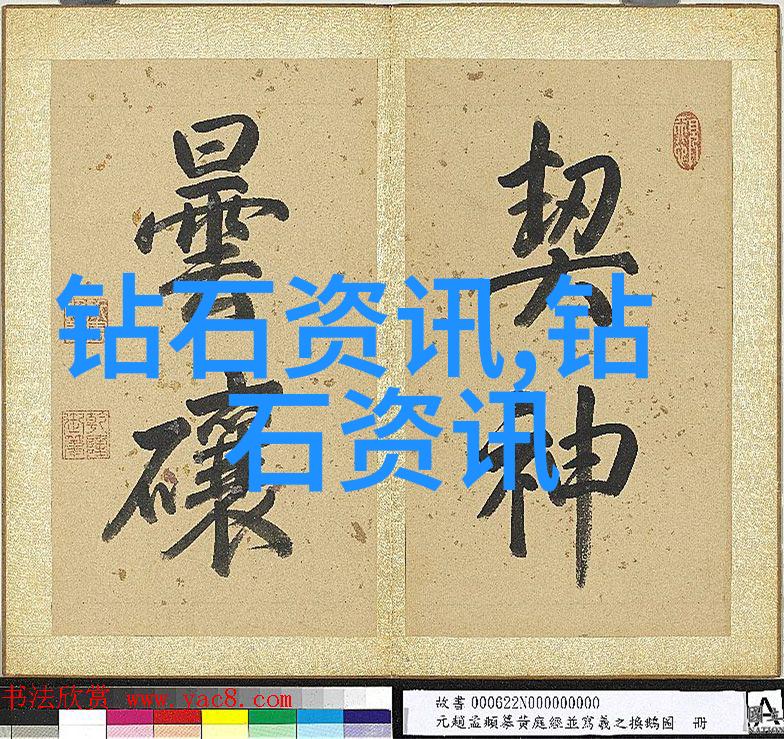 契神
曇
钻石资讯,钻
石资讯
书法欣赏 www.yac8.com
故書000622N000000000
元趙孟頫摹黃庭經並寫羲之換鵝圖 冊